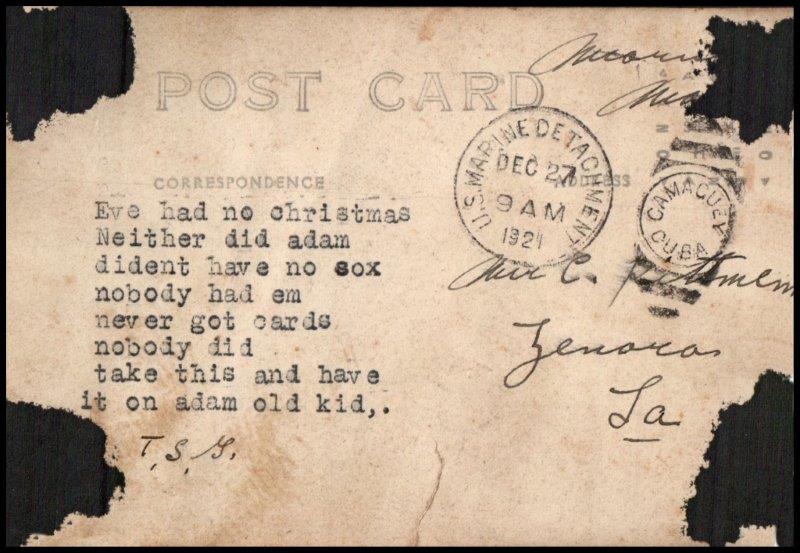 POST CARD
CORRESPONDENCE
ADDRESS
U.S. MARINE DETACHMENT
DEC 27
9 AM
1921
CAMAGUEY
CUBA
Eve had no christmas
Neither did adam
dident have no sox
nobody had em
never got cards
nobody did
take this and have
it on adam old kid,.
T. S. G.
La